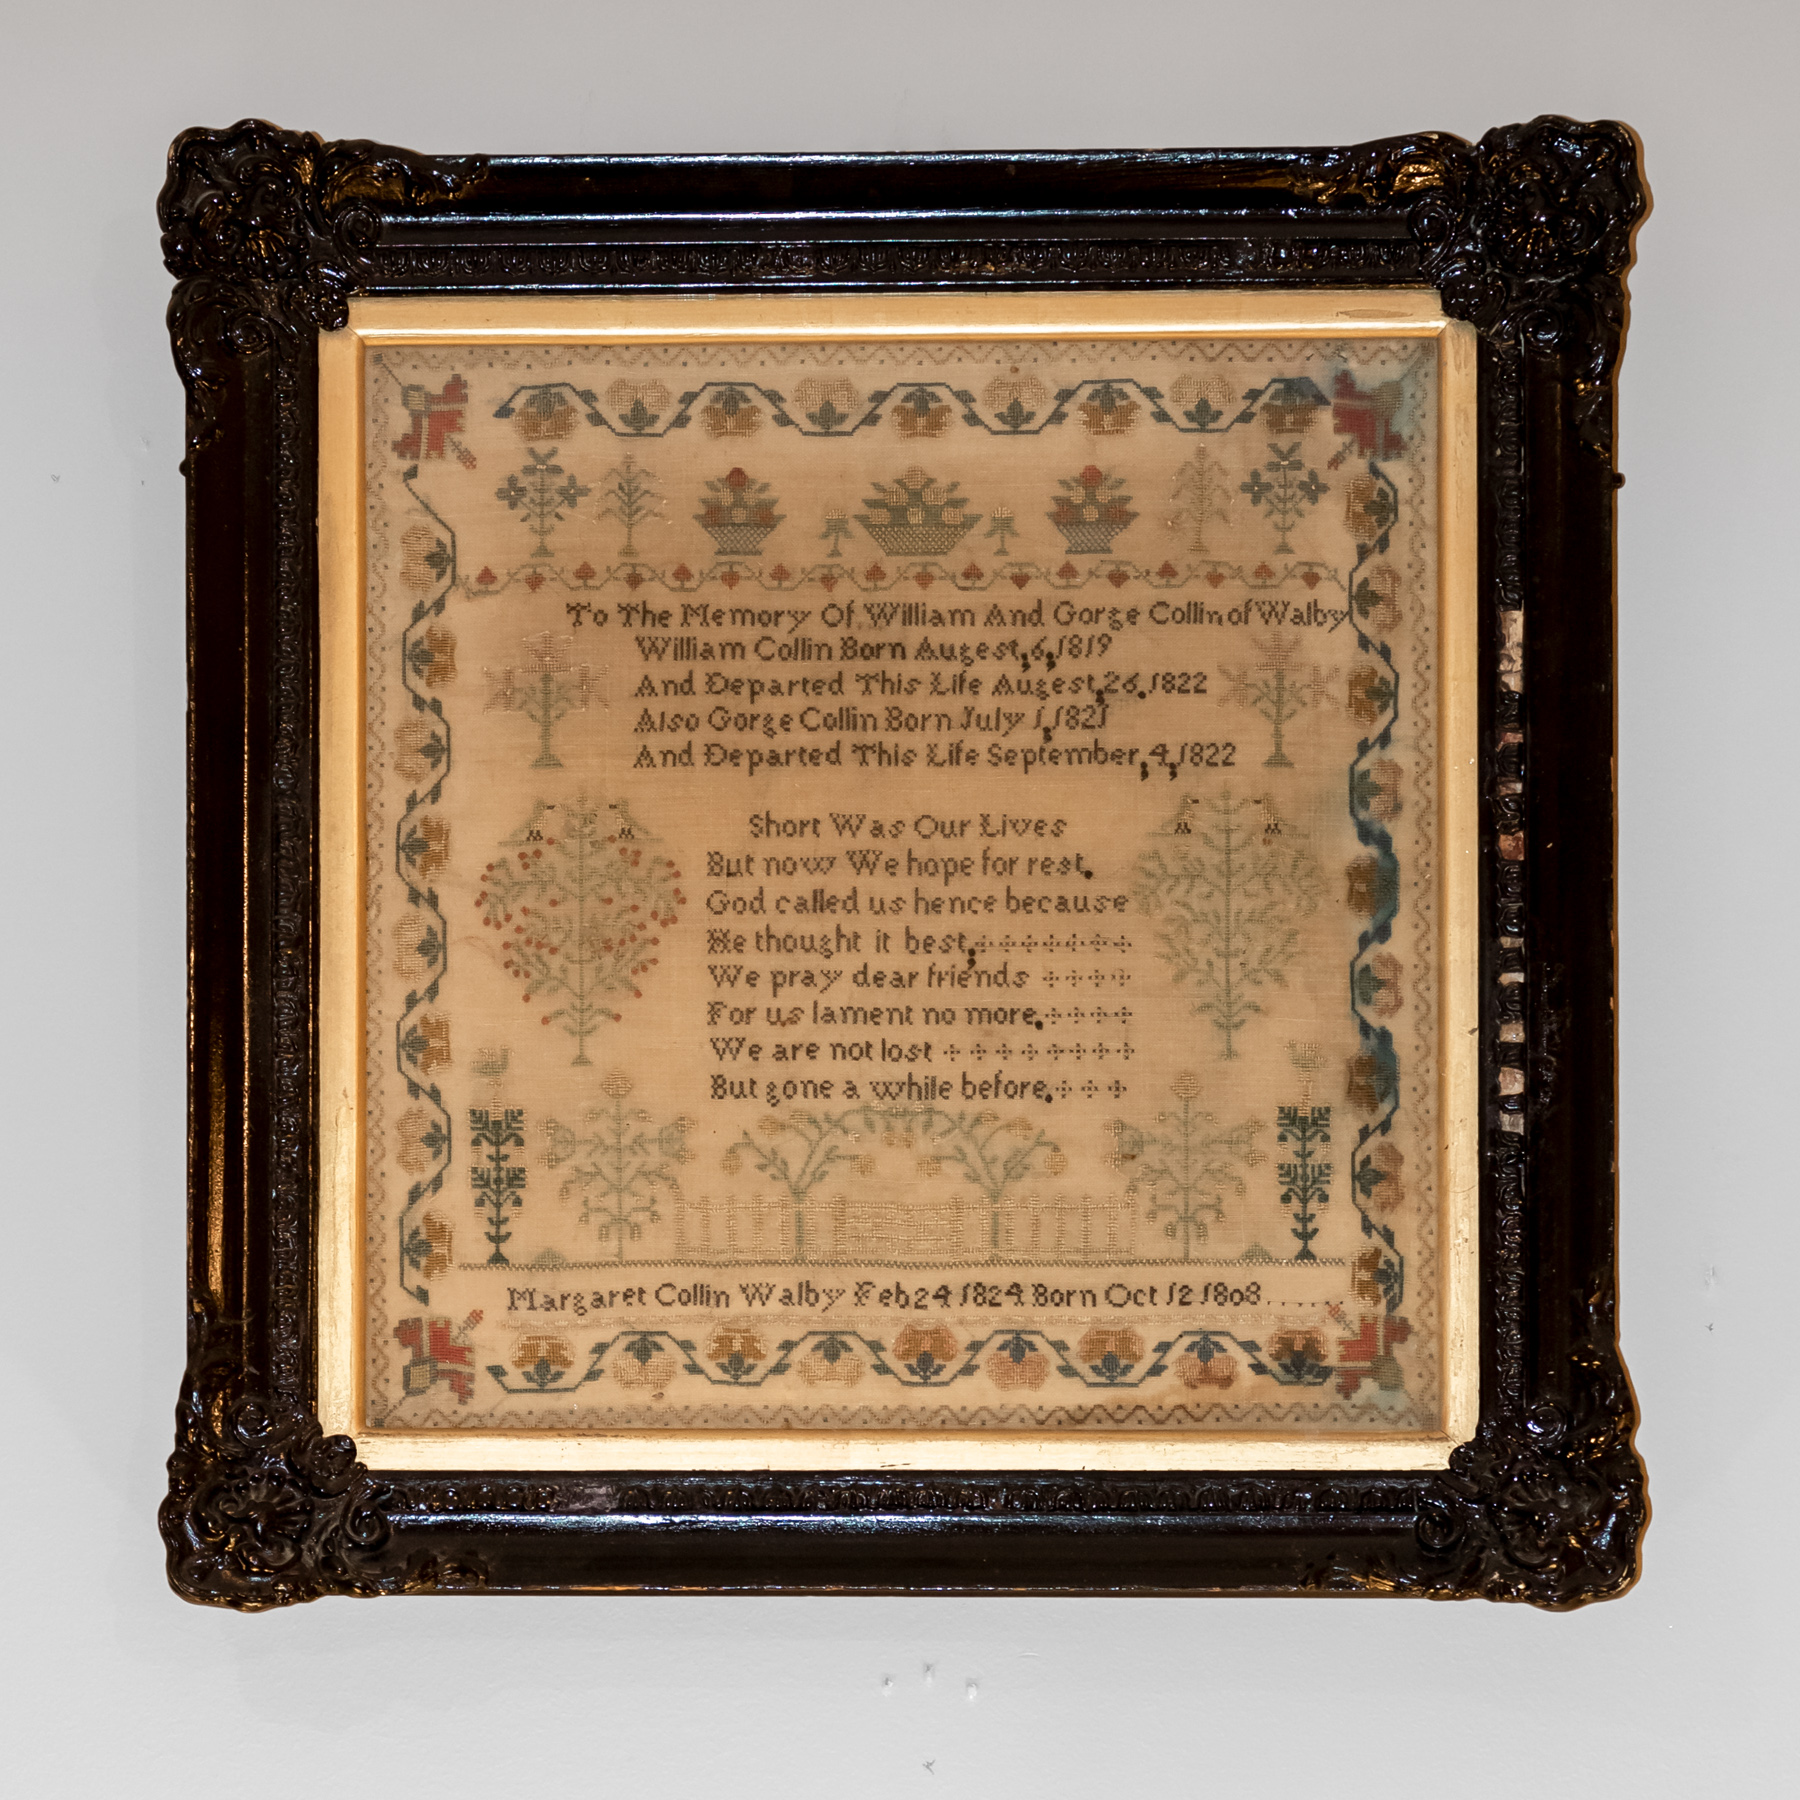 To The Memory Of, William And Gorge Collin of Walby
William Collin Born Augest, 6, 1819
And Departed This Life Augest, 26. 1822
Also Gorge Collin Born July 1, 1821
And Departed This Life September, 4, 1822
Short Was Our Lives
But now We hope for rest.
God called us hence because
He thought it best,
We pray dear friends
For us lament no more.
We are not lost
But gone a while before.
Margaret Collin Walby Feb 24 1824 Born Oct 12 1808......